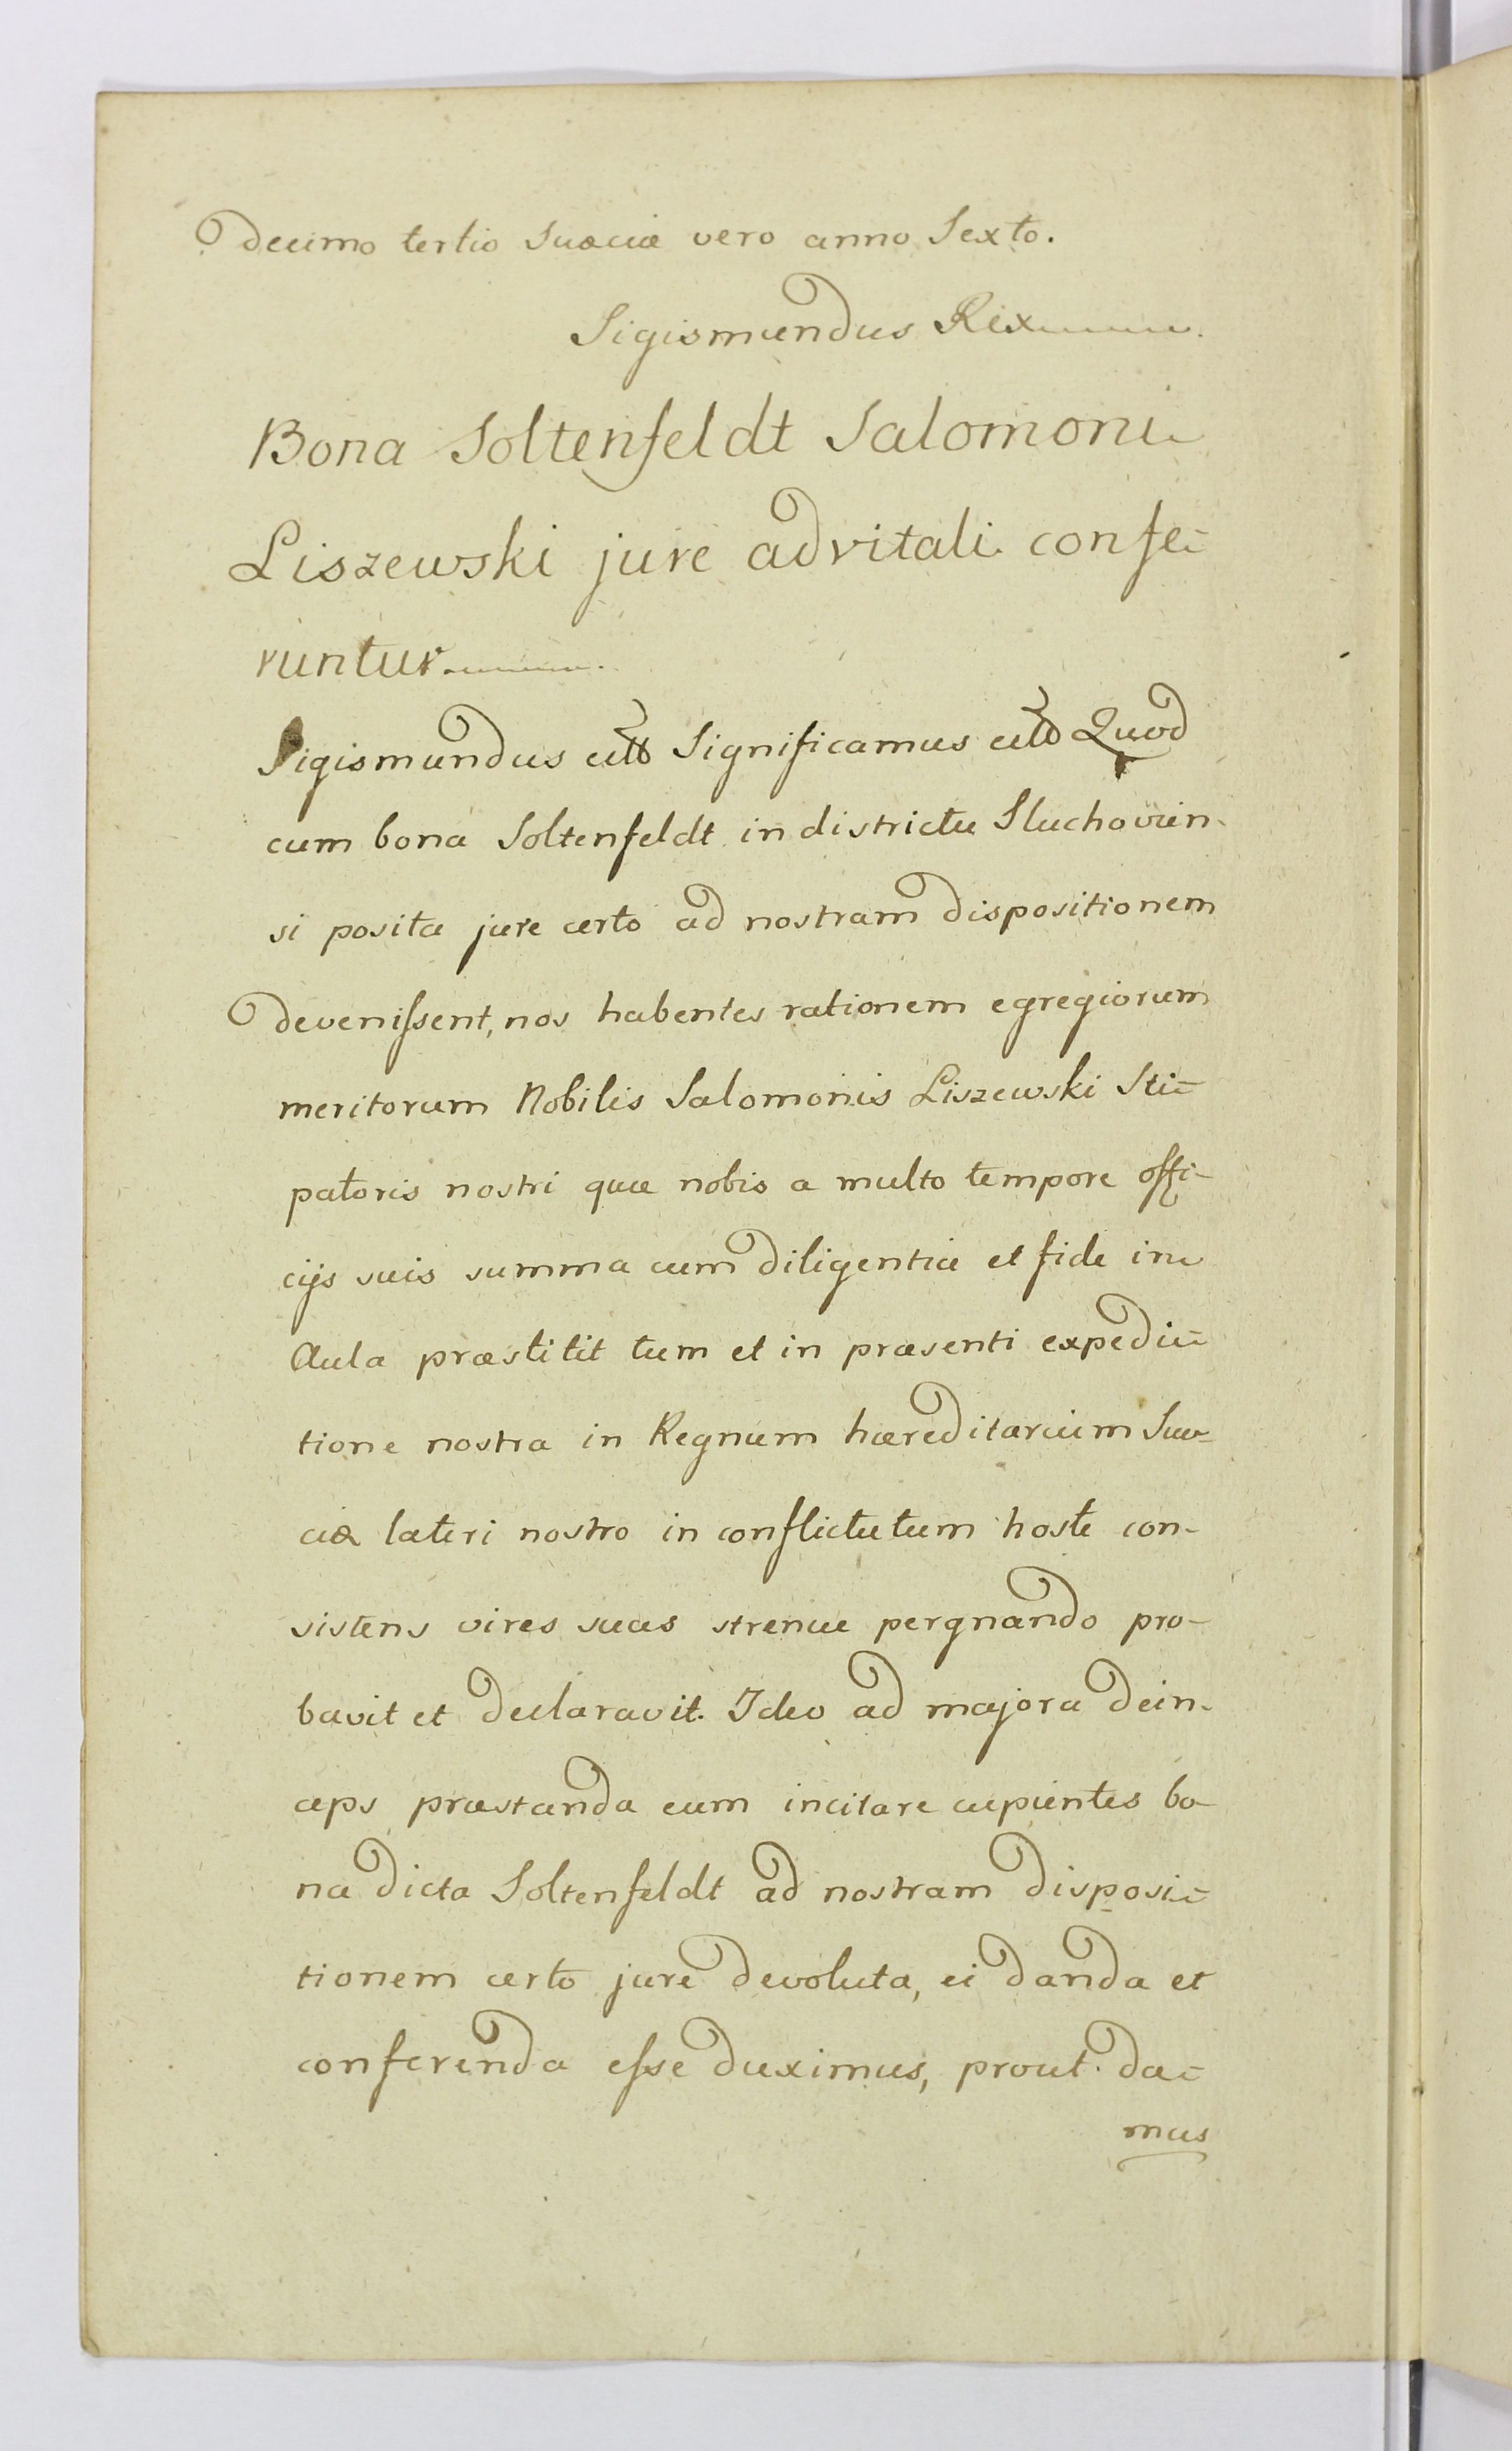 decimo tertio Suaeciae vero anno Sexto.
Sigismundus Rex
Bona Soltenfeldt Salomoni
Liszewski jure advitali confe-
runtur
Sigismundus Significamus Quod
cum bona Soltenfeldt in districtu Sluchovien-
si posita jure certo ad nostram dispositionem
devenissent, nos habentes rationem egregiorum
meritorum Nobilis Salomonis Liszewski Sti-
patoris nostri quae nobis a multo tempore offi-
cijs suis summa cum diligentia et fide in
Aula praestitit tum et in praesenti expedi-
tione nostra in Regnum haereditarium Sue-
ciae lateri nostro in conflictu tum hoste con-
sistens vires suas strenue pergnando pro-
bavit et declaravit. Ideo ad majora dein-
ceps praestanda eum incitare cupientes bo-
na dicta Soltenfeldt ad nostram disposi-
tionem certo jure devoluta, ei danda et
conferenda esse duximus, prout da-
mus